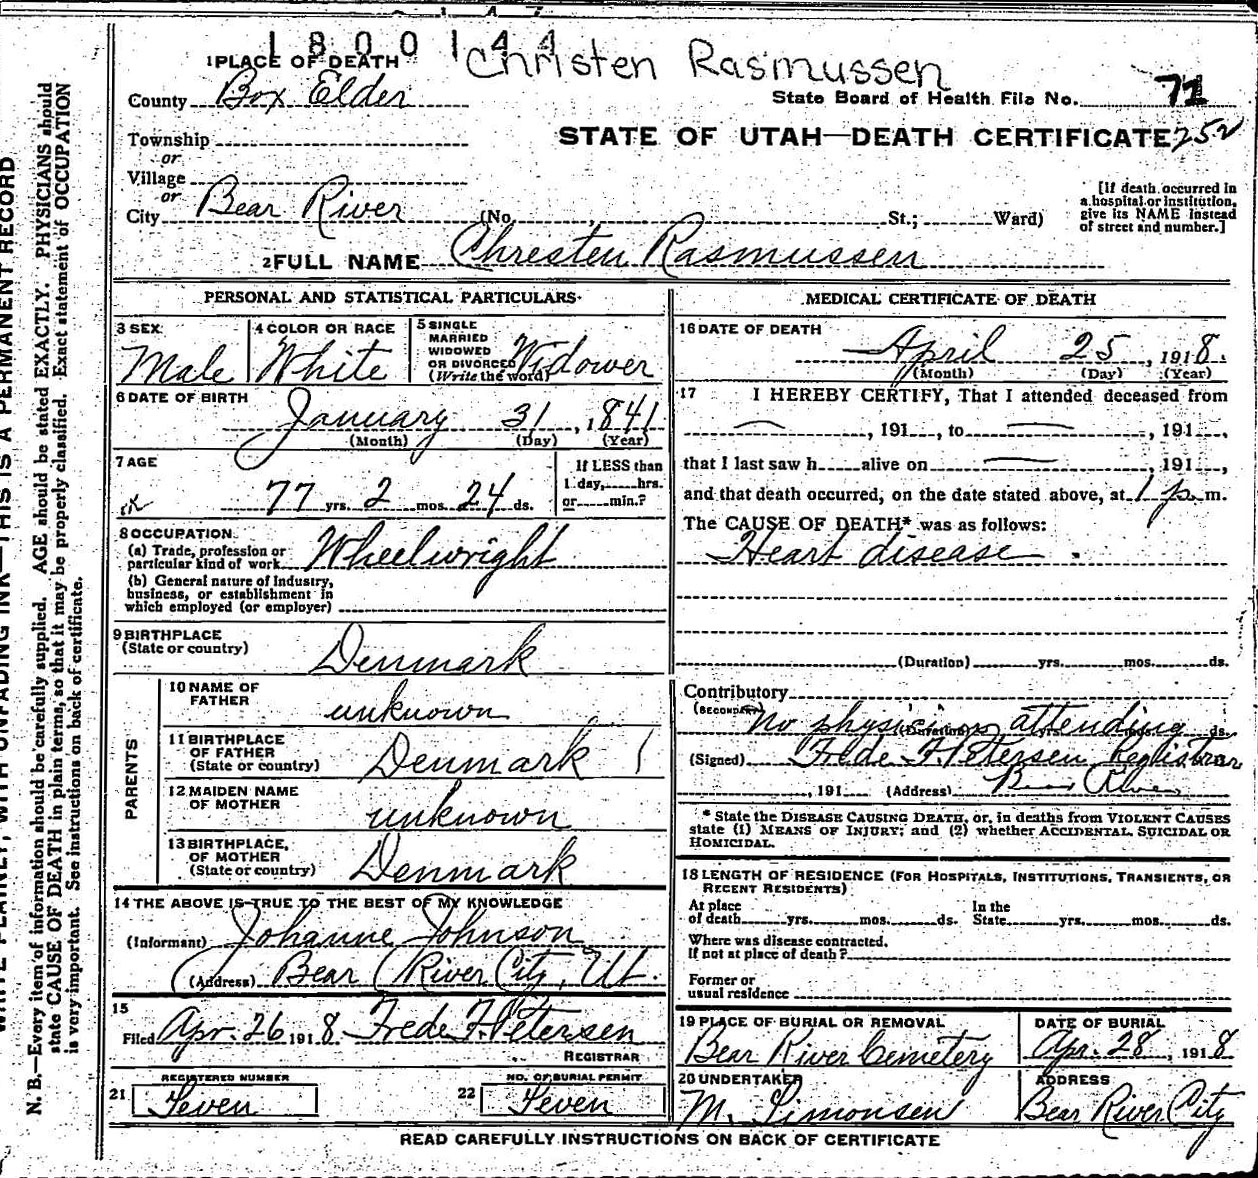 1800144
Christen Rasmussen
1 PLACE OF DEATH
County Box Elder
State Board of Health File No. 71
STATE OF UTAH—DEATH CERTIFICATE 252
Township
or
Village
or
City Bear River (No. , St.; Ward)
[If death occurred in
a hospital or institution,
give its NAME instead
of street and number.]
2 FULL NAME Chresten Rasmussen
PERSONAL AND STATISTICAL PARTICULARS
3 SEX
Male
4 COLOR OR RACE
White
5 SINGLE
MARRIED
WIDOWED
OR DIVORCED
(Write the word) Widower
6 DATE OF BIRTH
January 31, 1841
(Month) (Day) (Year)
7 AGE
77 yrs. 2 mos. 24 ds.
If LESS than
1 day, hrs.
or min.?
8 OCCUPATION
(a) Trade, profession or
particular kind of work Wheelwright
(b) General nature of industry,
business, or establishment in
which employed (or employer)
9 BIRTHPLACE
(State or country) Denmark
PARENTS
10 NAME OF
FATHER unknown
11 BIRTHPLACE
OF FATHER
(State or country) Denmark
12 MAIDEN NAME
OF MOTHER unknown
13 BIRTHPLACE,
OF MOTHER
(State or country) Denmark
14 THE ABOVE IS TRUE TO THE BEST OF MY KNOWLEDGE
(Informant) Johanne Johnson
(Address) Bear River City, Ut.
15
Filed Apr. 26 1918 Frede F. Petersen
REGISTRAR
21 REGISTERED NUMBER
Seven
22 NO. OF BURIAL PERMIT
Seven
MEDICAL CERTIFICATE OF DEATH
16 DATE OF DEATH
April 25, 1918.
(Month) (Day) (Year)
17 I HEREBY CERTIFY, That I attended deceased from
, 191 , to , 191 ,
that I last saw h alive on , 191 ,
and that death occurred, on the date stated above, at 1 p. m.
The CAUSE OF DEATH* was as follows:
Heart disease.
(Duration) yrs. mos. ds.
Contributory
(SECONDARY)
No physician attending
(Duration) yrs. mos. ds.
(Signed) Frede F. Petersen Registrar
, 191 (Address) Bear River
* State the DISEASE CAUSING DEATH, or, in deaths from VIOLENT CAUSES
state (1) MEANS OF INJURY; and (2) whether ACCIDENTAL, SUICIDAL OR
HOMICIDAL.
18 LENGTH OF RESIDENCE (FOR HOSPITALS, INSTITUTIONS, TRANSIENTS, OR
RECENT RESIDENTS)
At place
of death yrs. mos. ds.
In the
State yrs. mos. ds.
Where was disease contracted,
If not at place of death?
Former or
usual residence
19 PLACE OF BURIAL OR REMOVAL
Bear River Cemetery
DATE OF BURIAL
Apr. 28, 1918
20 UNDERTAKER
M. Simonsen
ADDRESS
Bear River City
READ CAREFULLY INSTRUCTIONS ON BACK OF CERTIFICATE
WRITE PLAINLY, WITH UNFADING INK—THIS IS A PERMANENT RECORD
N. B.—Every item of information should be carefully supplied. AGE should be stated EXACTLY. PHYSICIANS should
state CAUSE OF DEATH in plain terms, so that it may be properly classified. Exact statement of OCCUPATION
is very important. See instructions on back of certificate.